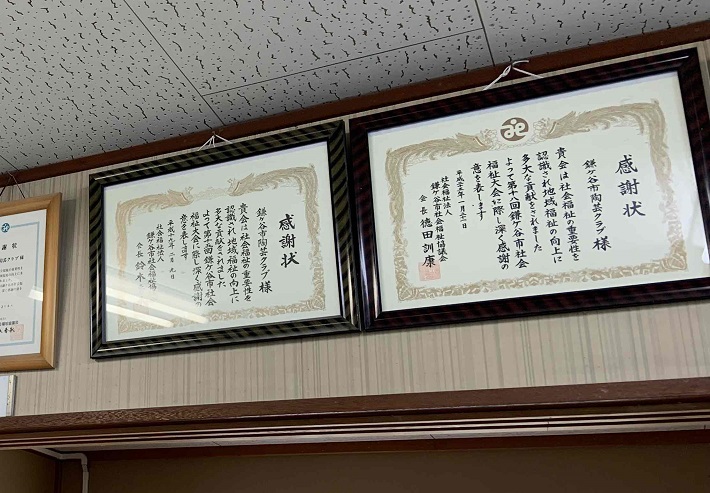 感謝状
鎌ケ谷市陶芸クラブ様
貴会は社会福祉の重要性を
認識され地域福祉の向上に
多大な貢献をされました
よって第十八回鎌ケ谷市社会
福祉大会に際し深く感謝の
意を表します
社会福祉法人
鎌ケ谷市社会福祉協議会
会長 徳田訓康
感謝状
鎌ケ谷市陶芸クラブ様
貴会は社会福祉の重要性を
認識され地域福祉の向上に
多大な貢献をされました
福祉大会に際し深く感謝の
意を表します
平成十九年二月九日
社会福祉法人
会長 鈴木